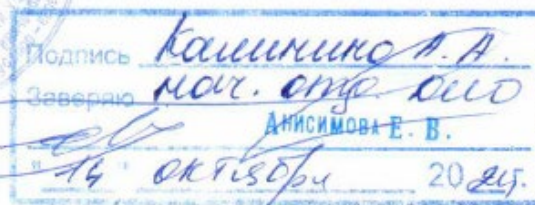 Подпись Калинина А.А.
Заверяю нач. отд. ОНО
Анисимова Е. В.
"14" октября 20 21г.